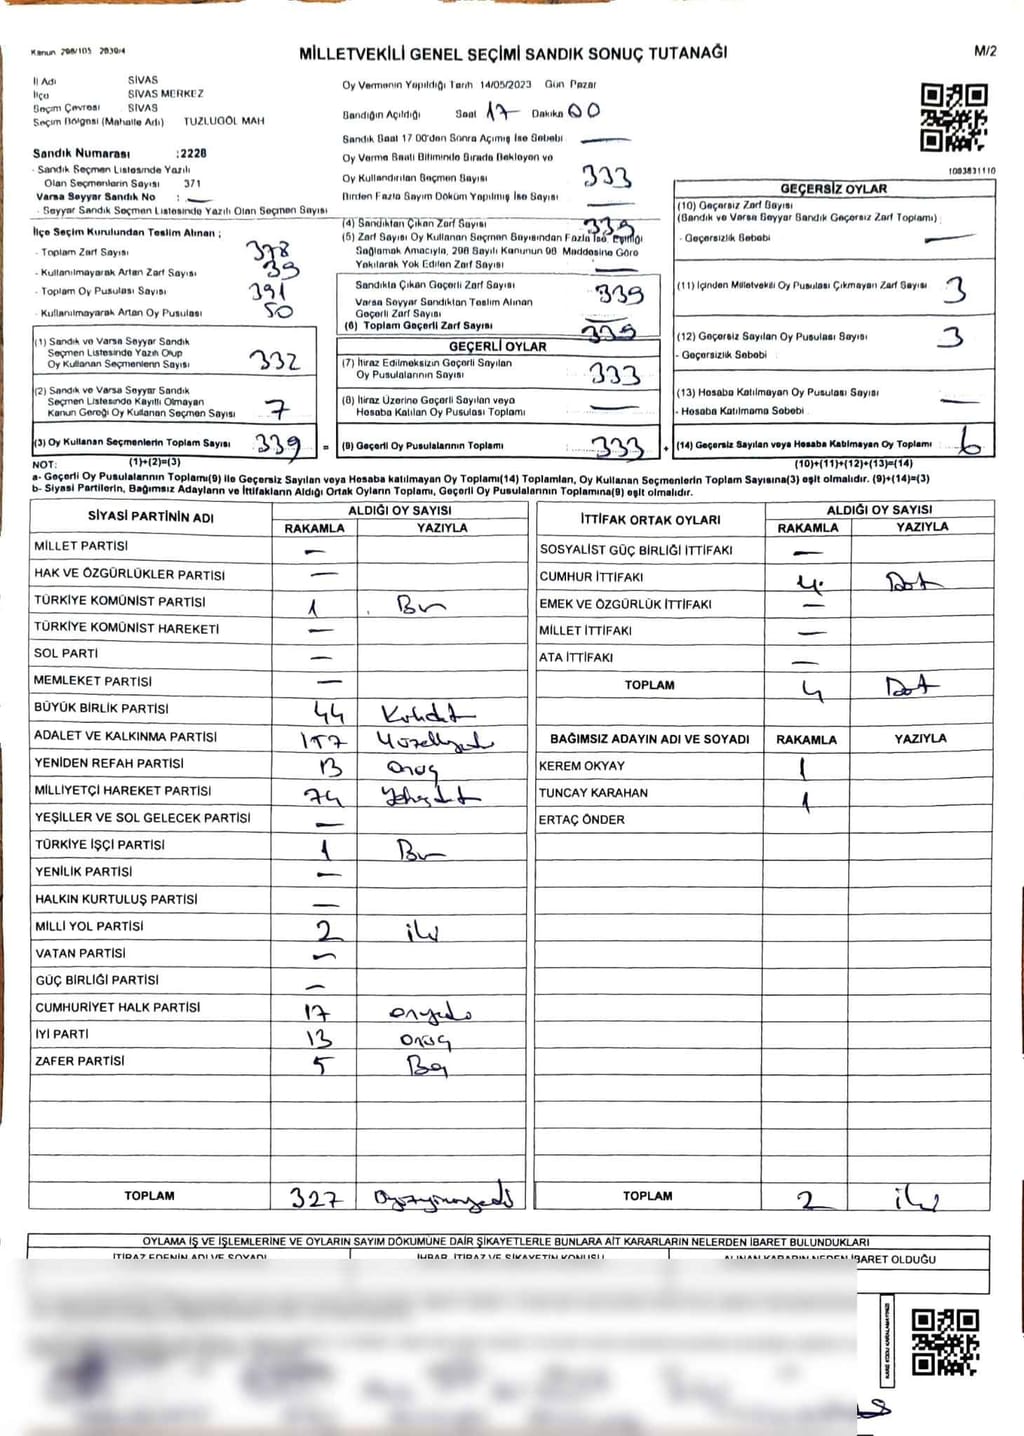 Kanun 298/105 2839/4
MİLLETVEKİLİ GENEL SEÇİMİ SANDIK SONUÇ TUTANAĞI
M/2
İl Adı SİVAS
İlçe SİVAS MERKEZ
Seçim Çevresi SİVAS
Seçim Bölgesi (Mahalle Adı) TUZLUGÖL MAH
Sandık Numarası :2228
- Sandık Seçmen Listesinde Yazılı
Olan Seçmenlerin Sayısı 371
Varsa Seyyar Sandık No : —
- Seyyar Sandık Seçmen Listesinde Yazılı Olan Seçmen Sayısı
İlçe Seçim Kurulundan Teslim Alınan ;
- Toplam Zarf Sayısı 378
- Kullanılmayarak Artan Zarf Sayısı 39
- Toplam Oy Pusulası Sayısı 391
- Kullanılmayarak Artan Oy Pusulası 50
(1) Sandık ve Varsa Seyyar Sandık
Seçmen Listesinde Yazılı Olup
Oy Kullanan Seçmenlerin Sayısı 332
(2) Sandık ve Varsa Seyyar Sandık
Seçmen Listesinde Kayıtlı Olmayan
Kanun Gereği Oy Kullanan Seçmen Sayısı 7
(3) Oy Kullanan Seçmenlerin Toplam Sayısı 339 =
Oy Vermenin Yapıldığı Tarih 14/05/2023 Gün Pazar
Sandığın Açıldığı Saat 17 Dakika 00
Sandık Saat 17 00'den Sonra Açılmış İse Sebebi —
Oy Verme Saati Bitiminde Sırada Bekleyen ve
Oy Kullandırılan Seçmen Sayısı 333
Birden Fazla Sayım Döküm Yapılmış İse Sayısı —
(4) Sandıktan Çıkan Zarf Sayısı 339
(5) Zarf Sayısı Oy Kullanan Seçmen Sayısından Fazla İse, Eşitliği
Sağlamak Amacıyla, 298 Sayılı Kanunun 98 Maddesine Göre
Yakılarak Yok Edilen Zarf Sayısı —
Sandıkta Çıkan Geçerli Zarf Sayısı 339
Varsa Seyyar Sandıktan Teslim Alınan
Geçerli Zarf Sayısı —
(6) Toplam Geçerli Zarf Sayısı 339
GEÇERLİ OYLAR
(7) İtiraz Edilmeksizin Geçerli Sayılan
Oy Pusulalarının Sayısı 333
(8) İtiraz Üzerine Geçerli Sayılan veya
Hesaba Katılan Oy Pusulası Toplamı —
(9) Geçerli Oy Pusulalarının Toplamı 333 +
1003831110
GEÇERSİZ OYLAR
(10) Geçersiz Zarf Sayısı
(Sandık ve Varsa Seyyar Sandık Geçersiz Zarf Toplamı)
- Geçersizlik Sebebi —
(11) İçinden Milletvekili Oy Pusulası Çıkmayan Zarf Sayısı 3
(12) Geçersiz Sayılan Oy Pusulası Sayısı 3
- Geçersizlik Sebebi
(13) Hesaba Katılmayan Oy Pusulası Sayısı —
- Hesaba Katılmama Sebebi
(14) Geçersiz Sayılan veya Hesaba Katılmayan Oy Toplamı 6
NOT: (1)+(2)=(3) (10)+(11)+(12)+(13)=(14)
a- Geçerli Oy Pusulalarının Toplamı(9) ile Geçersiz Sayılan veya Hesaba katılmayan Oy Toplamı(14) Toplamları, Oy Kullanan Seçmenlerin Toplam Sayısına(3) eşit olmalıdır. (9)+(14)=(3)
b- Siyasi Partilerin, Bağımsız Adayların ve İttifakların Aldığı Ortak Oyların Toplamı, Geçerli Oy Pusulalarının Toplamına(9) eşit olmalıdır.
SİYASİ PARTİNİN ADI ALDIĞI OY SAYISI
RAKAMLA YAZIYLA
MİLLET PARTİSİ —
HAK VE ÖZGÜRLÜKLER PARTİSİ —
TÜRKİYE KOMÜNİST PARTİSİ 1 Bir
TÜRKİYE KOMÜNİST HAREKETİ —
SOL PARTİ —
MEMLEKET PARTİSİ —
BÜYÜK BİRLİK PARTİSİ 44 Kırkdört
ADALET VE KALKINMA PARTİSİ 157 Yüzelliyedi
YENİDEN REFAH PARTİSİ 13 Onüç
MİLLİYETÇİ HAREKET PARTİSİ 74 Yetmişdört
YEŞİLLER VE SOL GELECEK PARTİSİ —
TÜRKİYE İŞÇİ PARTİSİ 1 Bir
YENİLİK PARTİSİ —
HALKIN KURTULUŞ PARTİSİ —
MİLLİ YOL PARTİSİ 2 iki
VATAN PARTİSİ —
GÜÇ BİRLİĞİ PARTİSİ —
CUMHURİYET HALK PARTİSİ 17 onyedi
İYİ PARTİ 13 onüç
ZAFER PARTİSİ 5 Beş
TOPLAM 327 Üçyüzyirmiyedi
İTTİFAK ORTAK OYLARI ALDIĞI OY SAYISI
RAKAMLA YAZIYLA
SOSYALİST GÜÇ BİRLİĞİ İTTİFAKI —
CUMHUR İTTİFAKI 4 Dört
EMEK VE ÖZGÜRLÜK İTTİFAKI —
MİLLET İTTİFAKI —
ATA İTTİFAKI —
TOPLAM 4 Dört
BAĞIMSIZ ADAYIN ADI VE SOYADI RAKAMLA YAZIYLA
KEREM OKYAY 1
TUNCAY KARAHAN 1
ERTAÇ ÖNDER
TOPLAM 2 iki
OYLAMA İŞ VE İŞLEMLERİNE VE OYLARIN SAYIM DÖKÜMÜNE DAİR ŞİKAYETLERLE BUNLARA AİT KARARLARIN NELERDEN İBARET BULUNDUKLARI
İTİRAZ EDENİN ADI VE SOYADI İHBAR, İTİRAZ VE ŞİKAYETİN KONUSU ALINAN KARARIN NEDEN İBARET OLDUĞU
KARE KODU KARALAMAYINIZ!